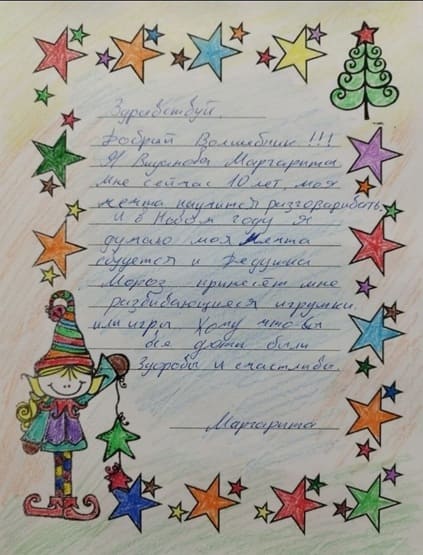 Здравствуй,
Добрый Волшебник !!!
Я Маргарита
мне сейчас 10 лет, моя
мечта научится разговаривать,
и в Новом году я
думаю моя мечта
сбудется и Дедушка
Мороз принесёт мне
развивающиеся игрушки,
или игры Хочу что-бы
все дети были
Здоровы и счастливы.
Маргарита